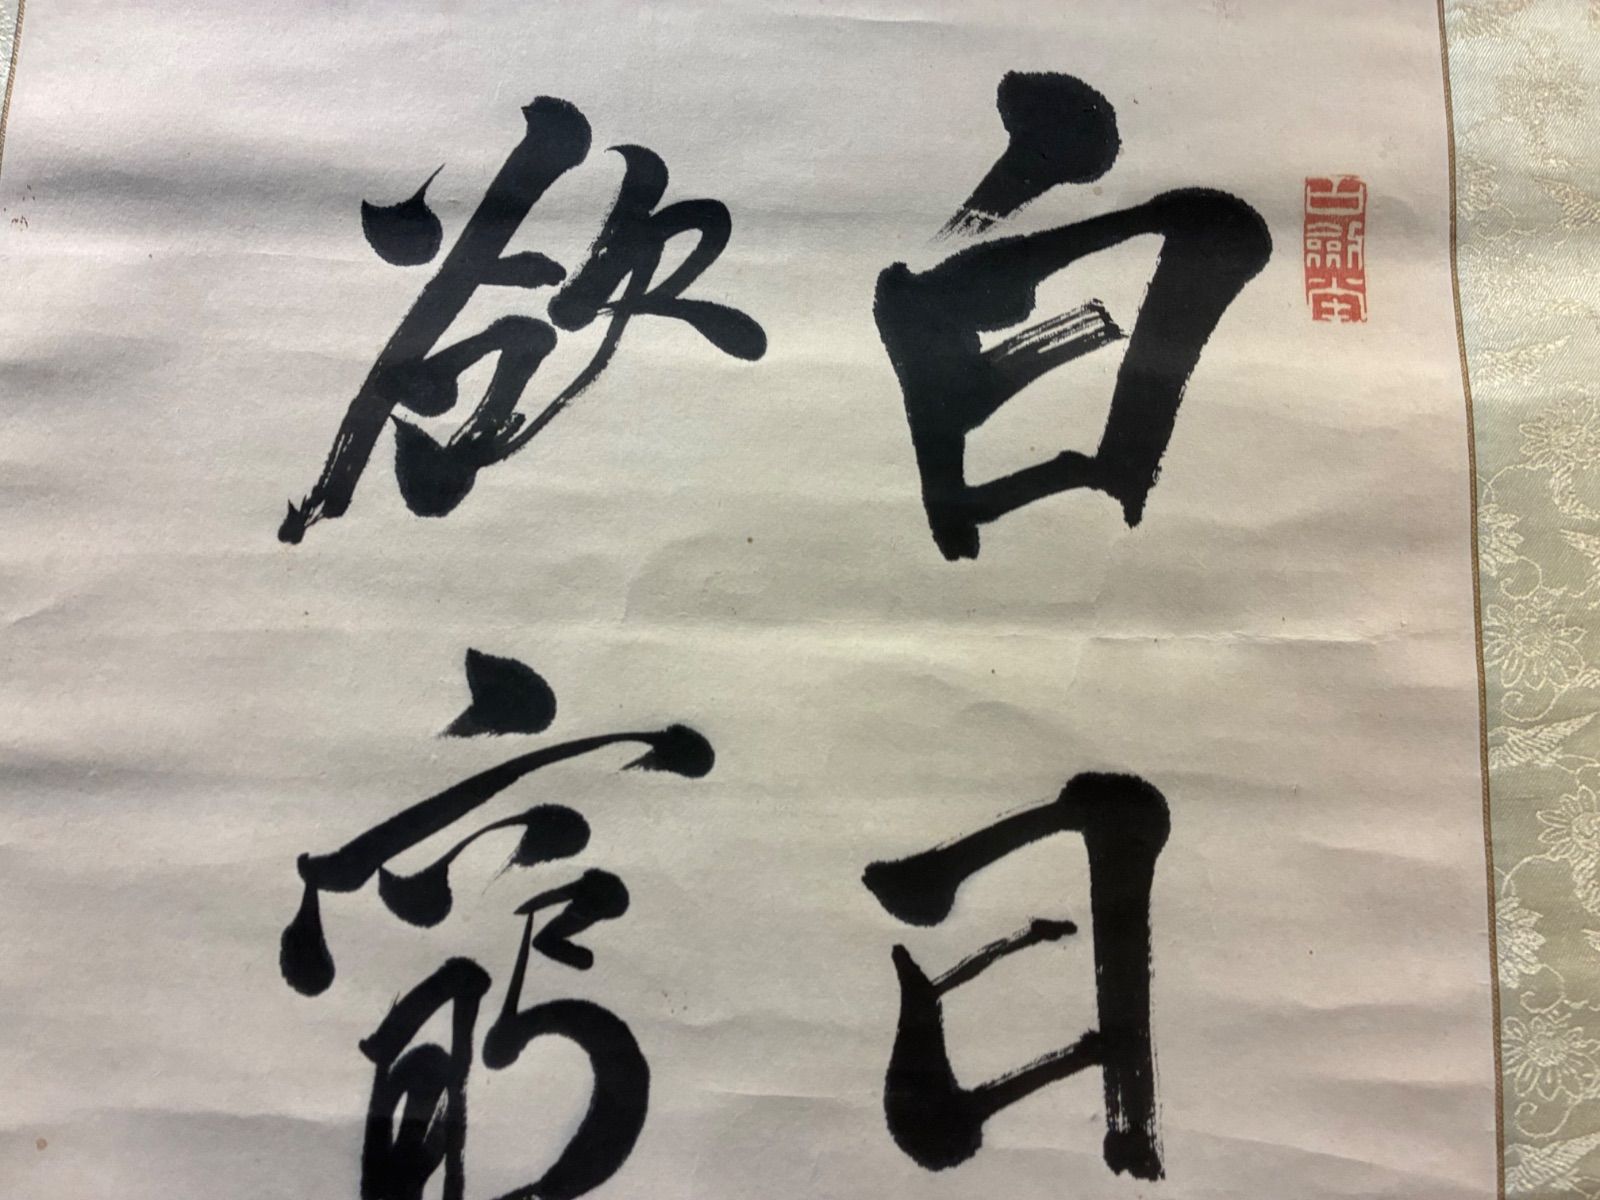 白日
欲窮